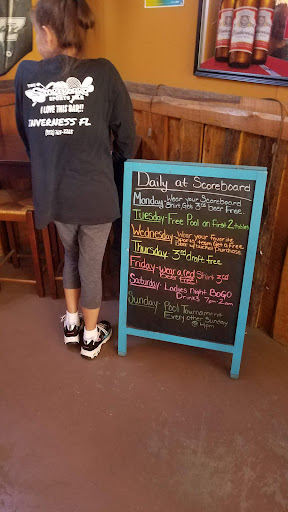 Scoreboard
SPORTS PUB
I LOVE THIS BAR!!
INVERNESS FL
Daily at Scoreboard
Monday-Wear your Scoreboard
Shirt, Get 3rd Beer Free
Tuesday-Free Pool on First 2 tables
Wednesday-Wear your Favorite
Thursday-3rd draft free
Friday-wear a red Shirt 3rd
Beer free
Saturday-Ladies Night BOGO
Drinks 7pm-2am
Sunday-Pool Tournament
Every other Sunday
Budweiser